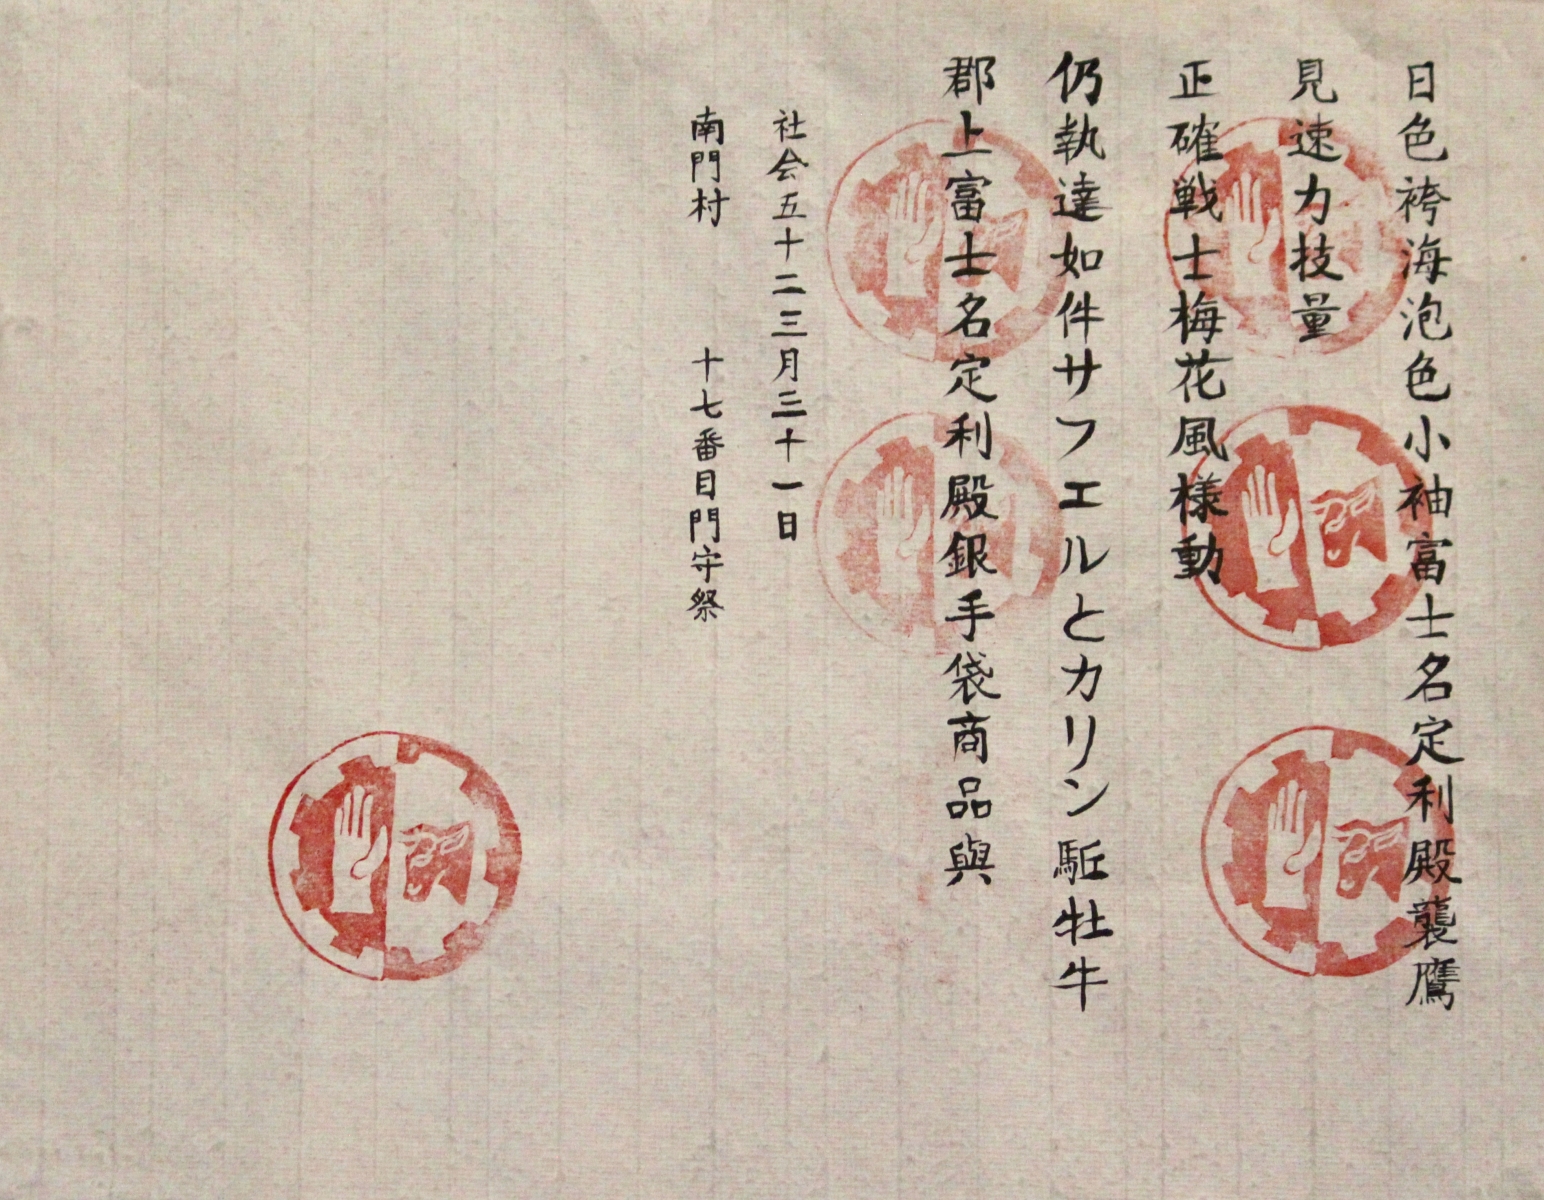 日色袴海泡色小袖富士名定利殿襲鷹
見速力技量
正確戦士梅花風様動
仍執達如件サフエルとカリン駈牡牛
郡上富士名定利殿銀手袋商品與
社会五十二三月三十一日
南門村 十七番目門守祭